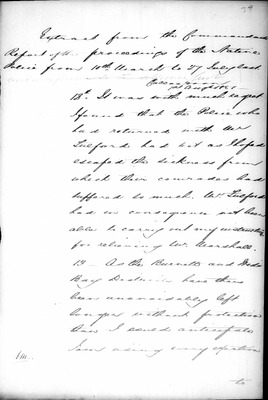 Extract from the Commandants
Report of the proceedings of the Native
Police from 10th March to 27 July last
18th It was with much regret
I found that the Police who
had returned with Mr
Fulford had not as I hoped
escaped the sickness from
which their comrades had
suffered so much. Mr Fulford
had in consequence not been
able to carry out my instructions
for relieving Mr Marshall.
19 – As the Burnett and Wide
Bay Districts have thus
been unavoidably left
longer without protection
than I could anticipate
I am using every exertion
to